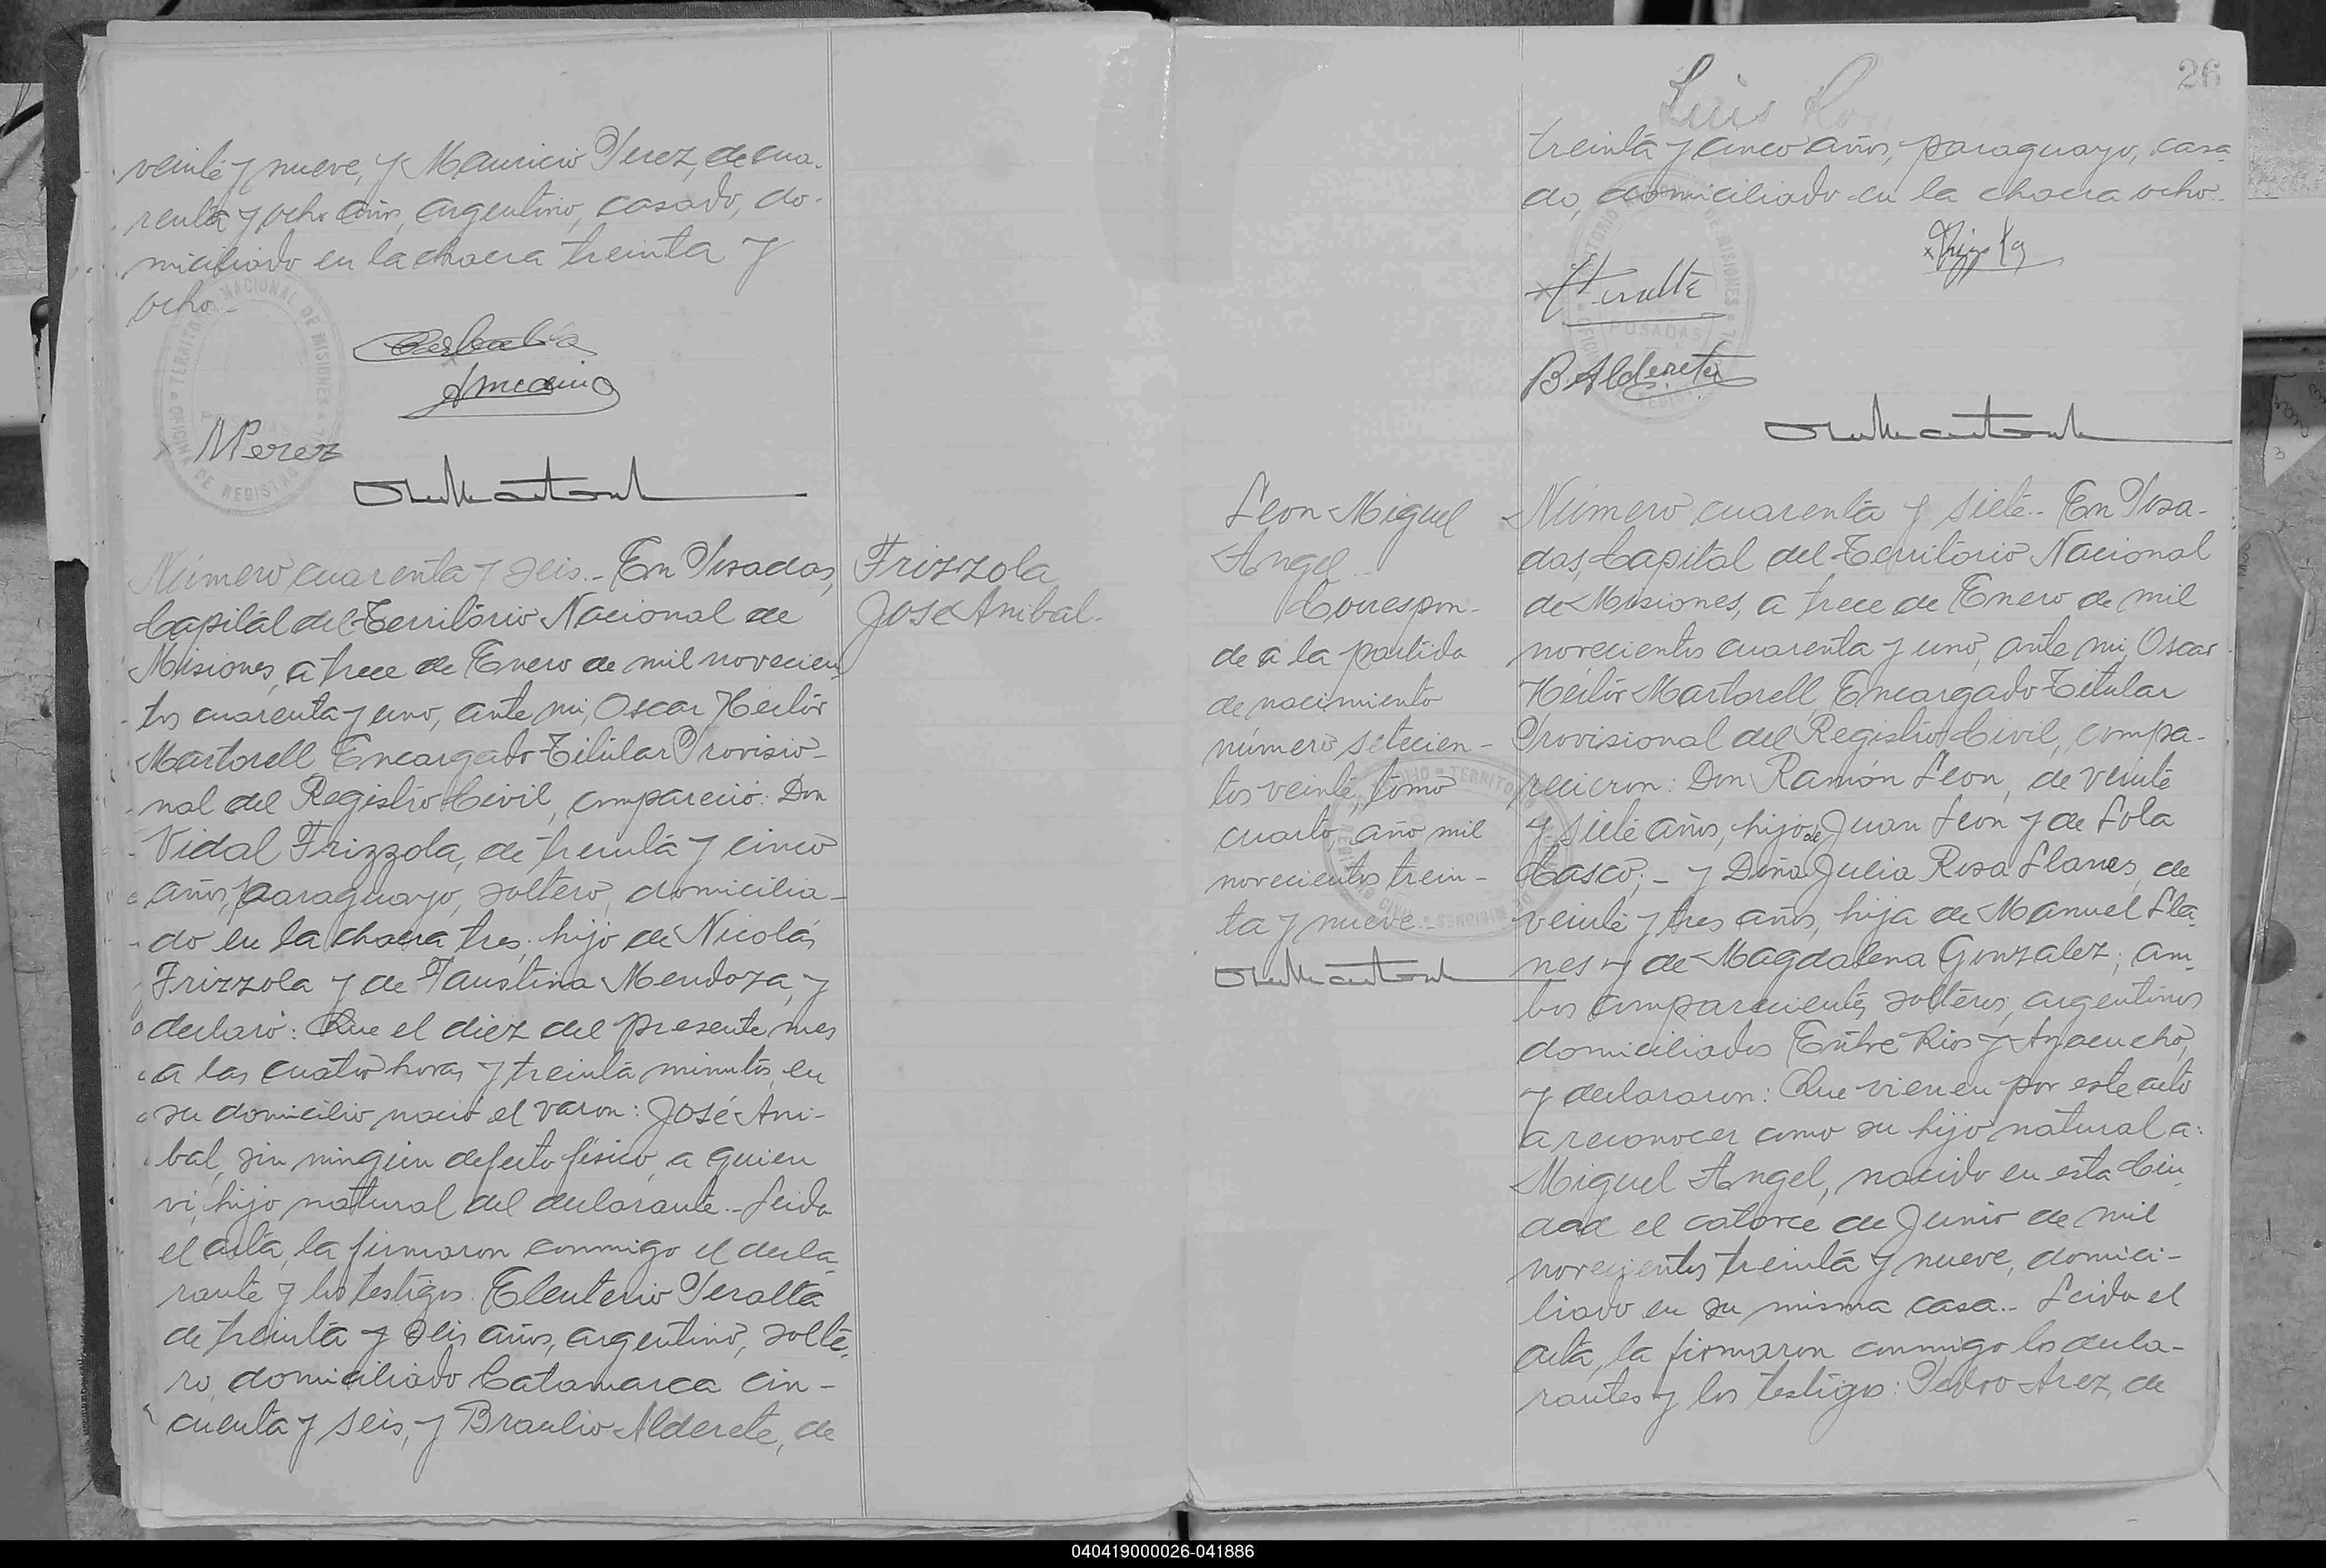 veinte y nueve, y Mauricio Perez, de cua-
renta y ocho años, argentino, casado, do-
miciliado en la chacra treinta y
ocho.-
TERRITORIO NACIONAL DE MISIONES
POSADAS
OFICINA DE REGISTRO
MPerez
Número cuarenta y seis.- En Posadas,
Capital del Territorio Nacional de
Misiones, a trece de Enero de mil novecien
tos cuarenta y uno, ante mi, Oscar Héctor
Martorell Encargado Titular Provisio-
nal del Registro Civil, compareció: Don
Vidal Frizzola, de treinta y cinco
años, paraguayo, soltero, domicilia-
do en la chacra tres, hijo de Nicolás
Frizzola y de Faustina Mendoza, y
declaró: Que el diez del presente mes
a las cuatro horas y treinta minutos, en
su domicilio nació el varon: José Ani-
bal, sin ningún defecto físico, a quien
vi, hijo natural del declarante.- Leida
el acta, la firmaron conmigo el decla-
rante y los testigos: Eleuterio Peralta
de treinta y seis años, argentino, solte-
ro, domiciliado Catamarca cin-
cuenta y seis, y Braulio Alderete, de
Frizzola
José Anibal.-
26
Luis
treinta y cinco años, paraguayo, casa
do, domiciliado en la chacra ocho.-
POSADAS
B. Alderete
Leon Miguel
Angel.-
Correspon-
de a la partida
de nacimiento
número setecien-
tos veinte, tomo
cuarto, año mil
novecientos trein-
ta y nueve.-
Número cuarenta y siete.- En Posa-
das, Capital del Territorio Nacional
de Misiones, a trece de Enero de mil
novecientos cuarenta y uno, ante mi, Oscar
Héctor Martorell, Encargado Titular
Provisional del Registro Civil, compa-
recieron: Don Ramón Leon, de veinte
y siete años, hijo de Juan Leon y de Lola
Casco;- y Doña Julia Rosa Llanes, de
veinte y tres años, hija de Manuel Lla-
nes y de Magdalena Gonzalez; am-
bos comparecientes, solteros, argentinos
domiciliados Entre Rios y Ayacucho,
y declararon: Que vienen por este acto
a reconocer como su hijo natural a:
Miguel Angel, nacido en esta Ciu
dad el catorce de Junio de mil
novecientos treinta y nueve, domici-
liado en su misma casa.- Leida el
acta, la firmaron conmigo los decla-
rantes y los testigos: Pedro Arez, de
040419000026-041886